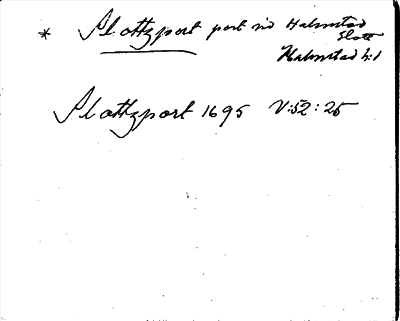 * Slottzport port vid Halmstad
Slott
Halmstad h:d
Slottzport 1695 V:52:25